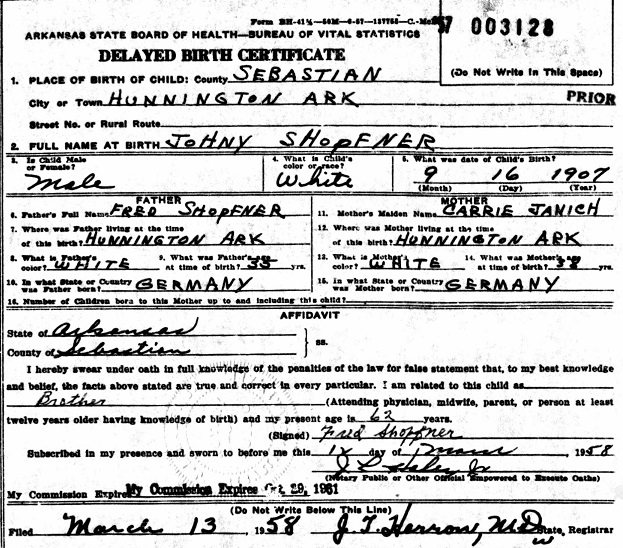 Form BH-41½-50M-6-57-137755-C.-McB
ARKANSAS STATE BOARD OF HEALTH—BUREAU OF VITAL STATISTICS
57 003128
DELAYED BIRTH CERTIFICATE
(Do Not Write In This Space)
1. PLACE OF BIRTH OF CHILD: County SEBASTIAN
City or Town HUNNINGTON ARK
PRIOR
Street No. or Rural Route
2. FULL NAME AT BIRTH JOHNY SHOPFNER
3. Is Child Male or Female? Male
4. What is Child's color or race? White
5. What was date of Child's Birth? 9 16 1907
(Month) (Day) (Year)
FATHER
MOTHER
6. Father's Full Name FRED SHOPFNER
11. Mother's Maiden Name CARRIE JANICH
7. Where was Father living at the time
of this birth? HUNNINGTON ARK
12. Where was Mother living at the time
of this birth? HUNNINGTON ARK
8. What is Father's color? WHITE
9. What was Father's age at time of birth? yrs.
13. What is Mother's color? WHITE
14. What was Mother's age at time of birth? 38 yrs.
10. In what State or Country was Father born? GERMANY
15. In what State or Country was Mother born? GERMANY
16. Number of Children born to this Mother up to and including this child?
AFFIDAVIT
State of Arkansas
County of Sebastian } ss.
I hereby swear under oath in full knowledge of the penalties of the law for false statement that, to my best knowledge
and belief, the facts above stated are true and correct in every particular. I am related to this child as
Brother (Attending physician, midwife, parent, or person at least
twelve years older having knowledge of birth) and my present age is 62 years.
(Signed) Fred Shopfner
Subscribed in my presence and sworn to before me this 12 day of Mar 1958
(Notary Public or Other Official Empowered to Execute Oaths)
My Commission Expires My Commission Expires Oct 29, 1961
(Do Not Write Below This Line)
Filed March 13 1958 J. T. Herron, M.D. State Registrar